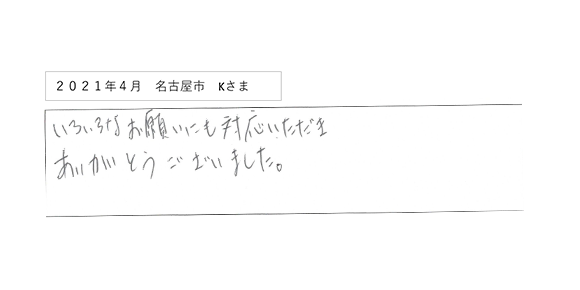 2021年4月 名古屋市 Kさま
いろいろなお願いにも対応いただき
ありがとうございました。